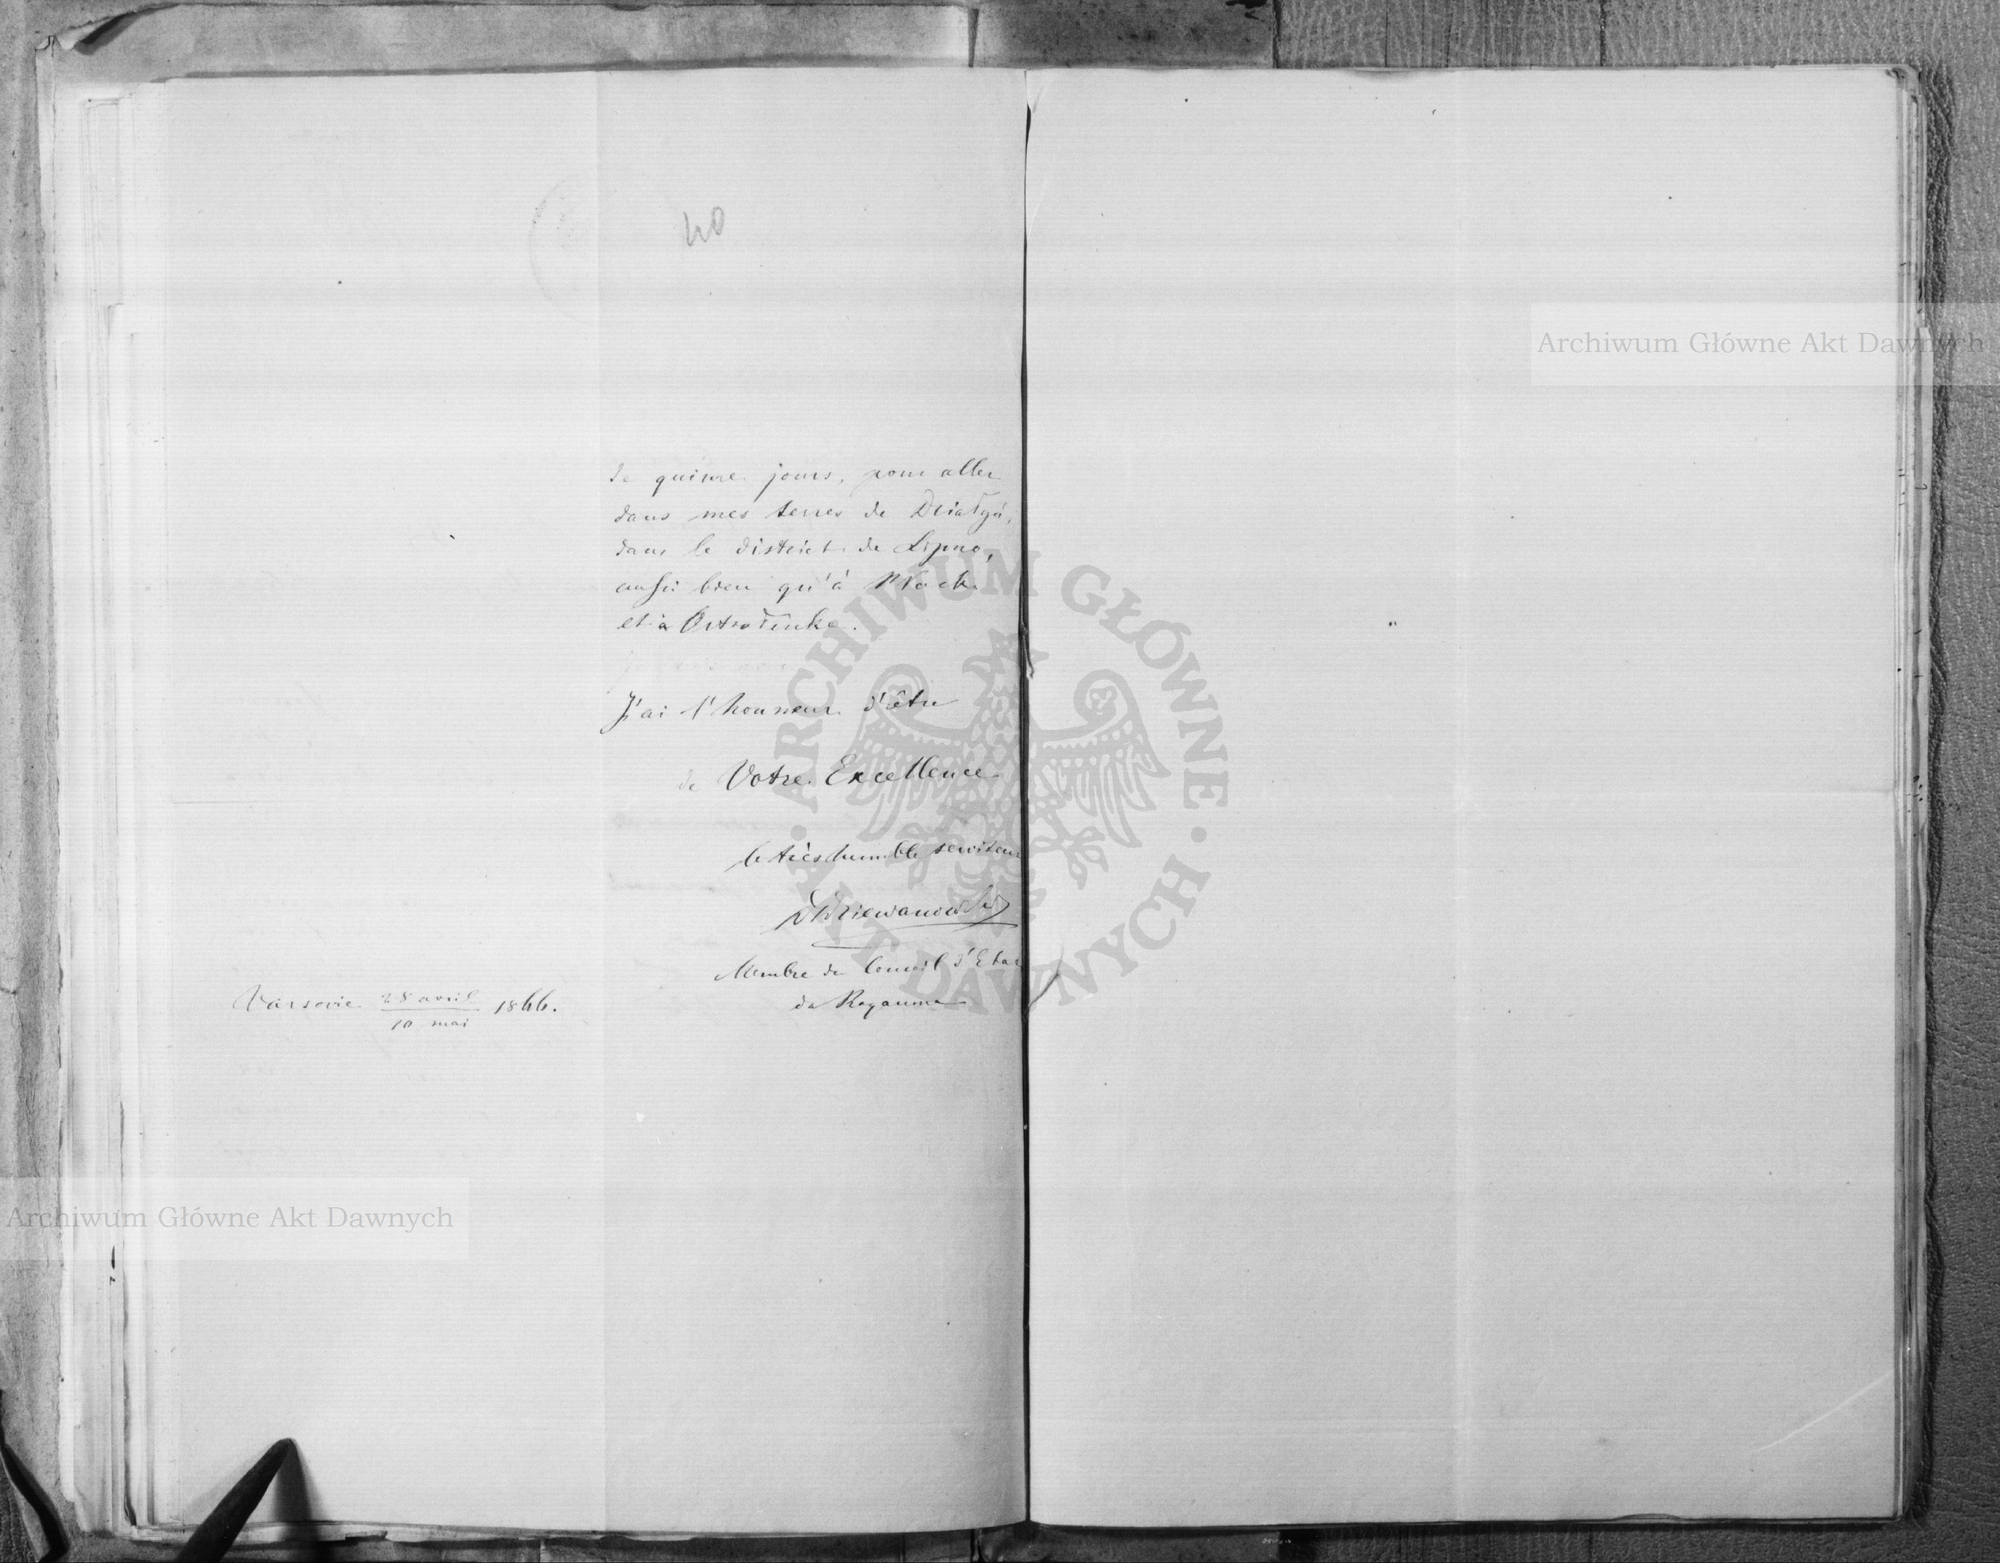 40
de quinze jours, pour aller
dans mes terres de Działyń,
dans le district de Lipno,
aussi bien qu'à Płock
et à Ostrołenka.
J'ai l'honneur d'être
de Votre Excellence
le très humble serviteur
Dziewanowski
Membre du Conseil d'Etat
du Royaume
Varsovie 28 avril 1866.
10 mai
Archiwum Główne Akt Dawnych
Archiwum Główne Akt Dawnych
ARCHIWUM GŁÓWNE
AKT DAWNYCH